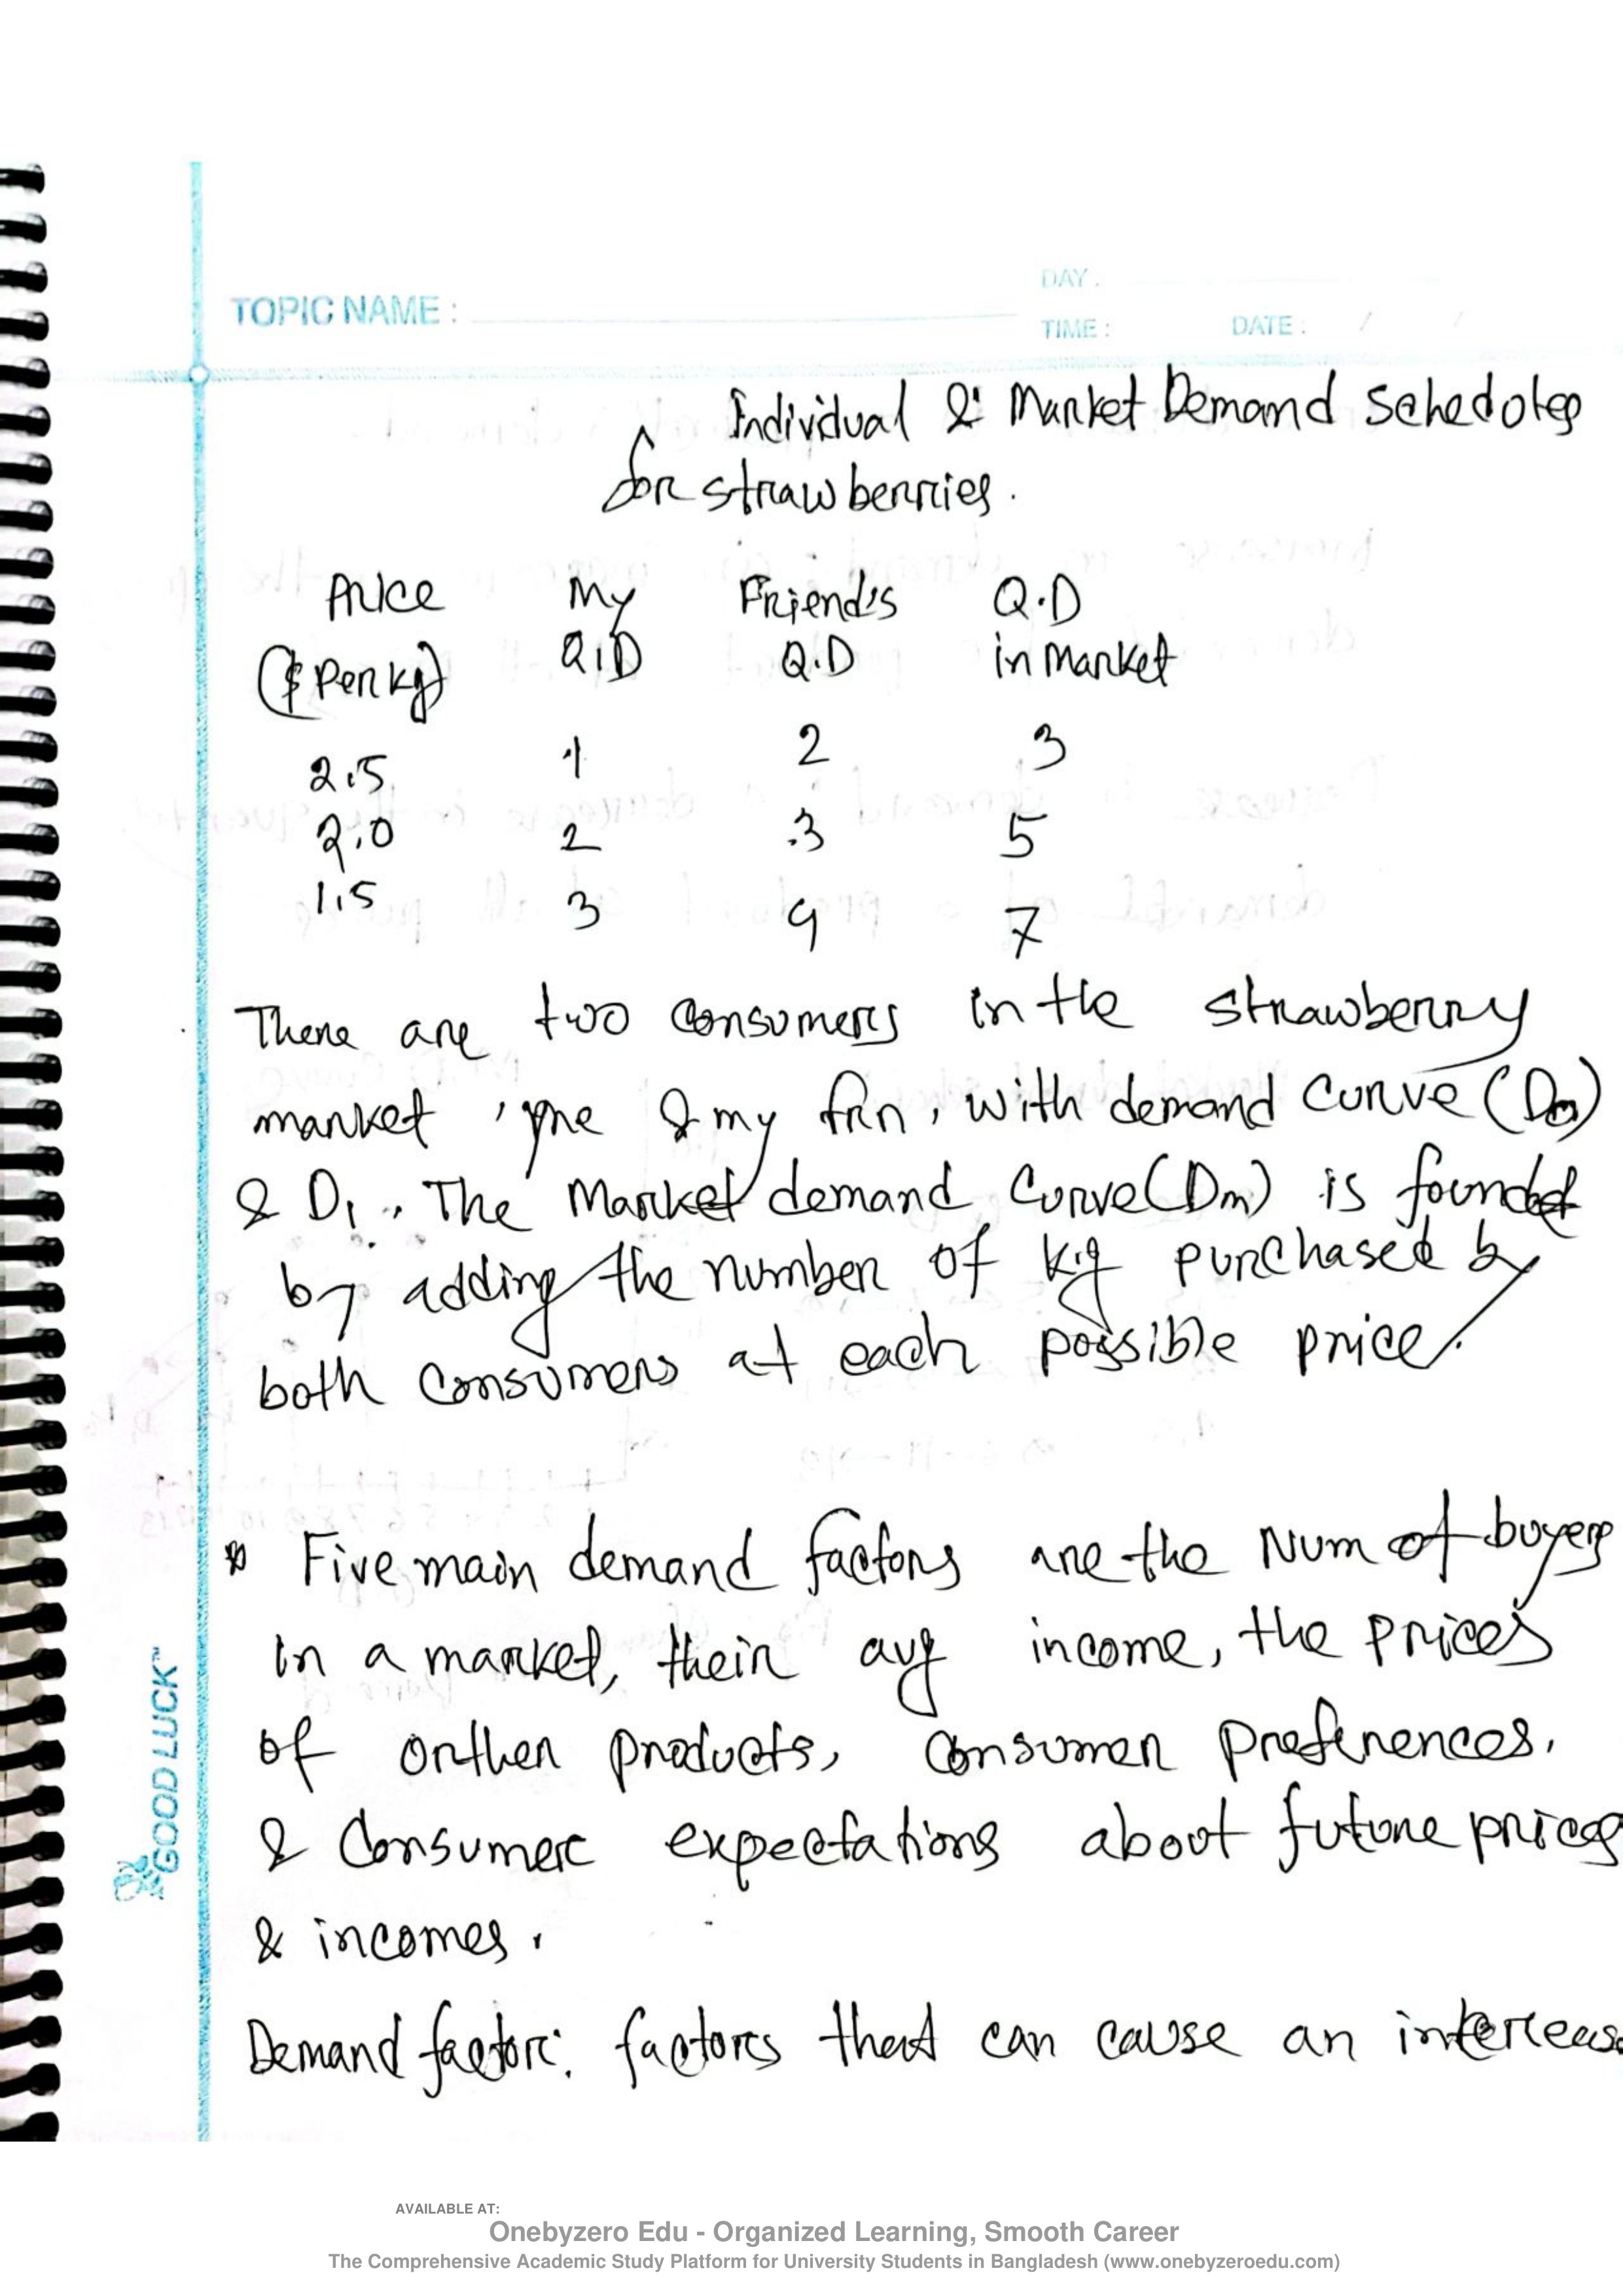 DAY :
TOPIC NAME :
TIME : DATE : / /
Individual & Market Demand schedules
for strawberries.
Price My Friend's Q.D
($ Per kg) Q.D Q.D in market
2.5 1 2 3
2.0 2 3 5
1.5 3 4 7
There are two consumers in the strawberry
market, me & my frn, with demand curve (D₀)
& D₁. The Market demand curve (Dm) is found
by adding the number of kg purchased by
both consumers at each possible price.
* Five main demand factors are the Num of buyers
in a market, their avg income, the prices
of orther products, consumer prefernences.
& Consumer expectations about future prices
& incomes.
Demand factor: factors that can cause an
GOOD LUCK™
AVAILABLE AT:
Onebyzero Edu - Organized Learning, Smooth Career
The Comprehensive Academic Study Platform for University Students in Bangladesh (www.onebyzeroedu.com)